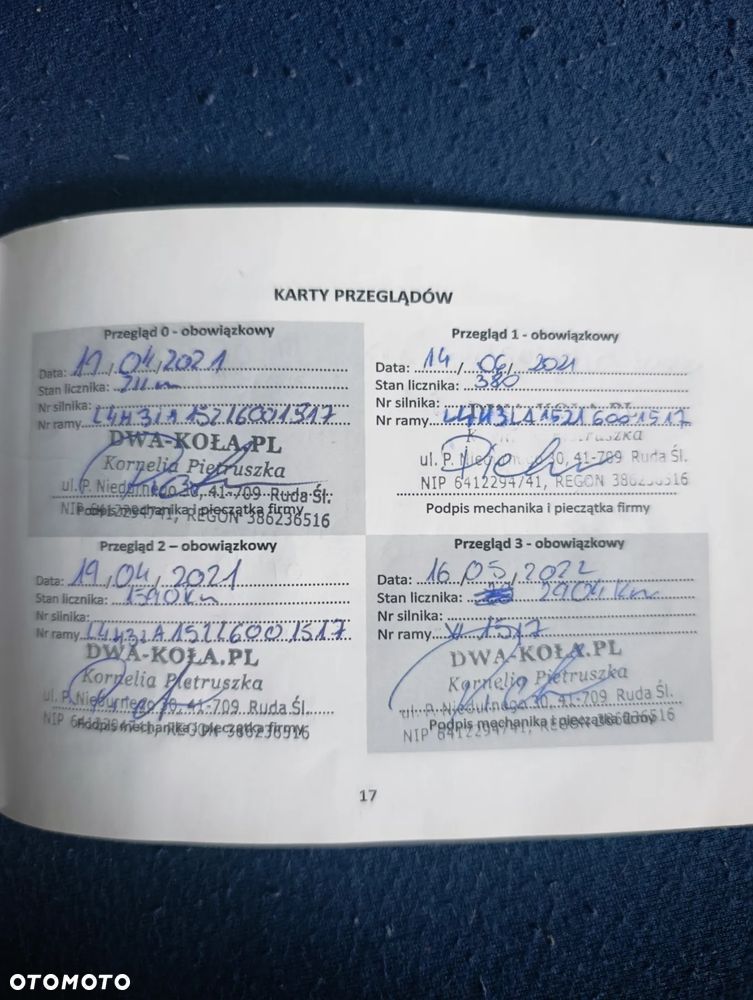 KARTY PRZEGLĄDÓW
Przegląd 0 - obowiązkowy
Data: 19/04/2021
Stan licznika:
Nr silnika:
Nr ramy: L4H3LA15216001517
DWA-KOŁA.PL
Kornelia Pietruszka
ul. P. Niedurnego 30, 41-709 Ruda Śl.
NIP 6412294741, REGON 386236516
Podpis mechanika i pieczątka firmy
Przegląd 1 - obowiązkowy
Data: 14/06/2021
Stan licznika: 380
Nr silnika:
Nr ramy L4H3LA15216001517
ul. P. 30, 41-709 Ruda Śl.
NIP 6412294741, REGON
Podpis mechanika i pieczątka firmy
Przegląd 2 – obowiązkowy
Data: 19/04/2021
Stan licznika: 1590 km
Nr silnika:
Nr ramy L4H3LA15216001517
DWA-KOŁA.PL
Kornelia Pietruszka
ul. P. 30, 41-709 Ruda Śl.
NIP REGON 386236516
Podpis mechanika i pieczątka firmy
Przegląd 3 - obowiązkowy
Data: 16/05/2022
Stan licznika: 2904 km
Nr silnika:
Nr ramy 1517
DWA-KOŁA.PL
Kornelia Pietruszka
ul. P. Niedurnego 30, 41-709 Ruda Śl.
NIP 6412294741, REGON 386236516
Podpis mechanika i pieczątka firmy
17
OTOMOTO